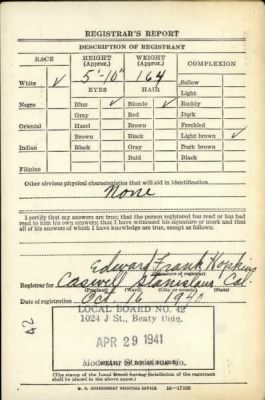 REGISTRAR'S REPORT
DESCRIPTION OF REGISTRANT
RACE HEIGHT (Approx.) WEIGHT (Approx.) COMPLEXION
5'-10" 164
White ✓ Sallow
EYES HAIR Light
Negro Blue ✓ Blonde ✓ Ruddy
Gray Red Dark
Oriental Hazel Brown Freckled
Brown Black Light brown ✓
Indian Black Gray Dark brown
Bald Black
Filipino
Other obvious physical characteristics that will aid in identification
None
I certify that my answers are true; that the person registered has read or has had
read to him his own answers; that I have witnessed his signature or mark and that
all of his answers of which I have knowledge are true, except as follows:
Edward Frank Hopkins
Registrar for Caswell Stanislaus Cal.
(Precinct) (City or county) (State)
Date of registration Oct. 16 1940
LOCAL BOARD NO. 42
42 1024 J St., Beaty Bldg.
APR 29 1941
(STAMP OF LOCAL BOARD)
(The stamp of the Local Board having jurisdiction of the registrant
shall be placed in the above space.)
U. S. GOVERNMENT PRINTING OFFICE 16—17105